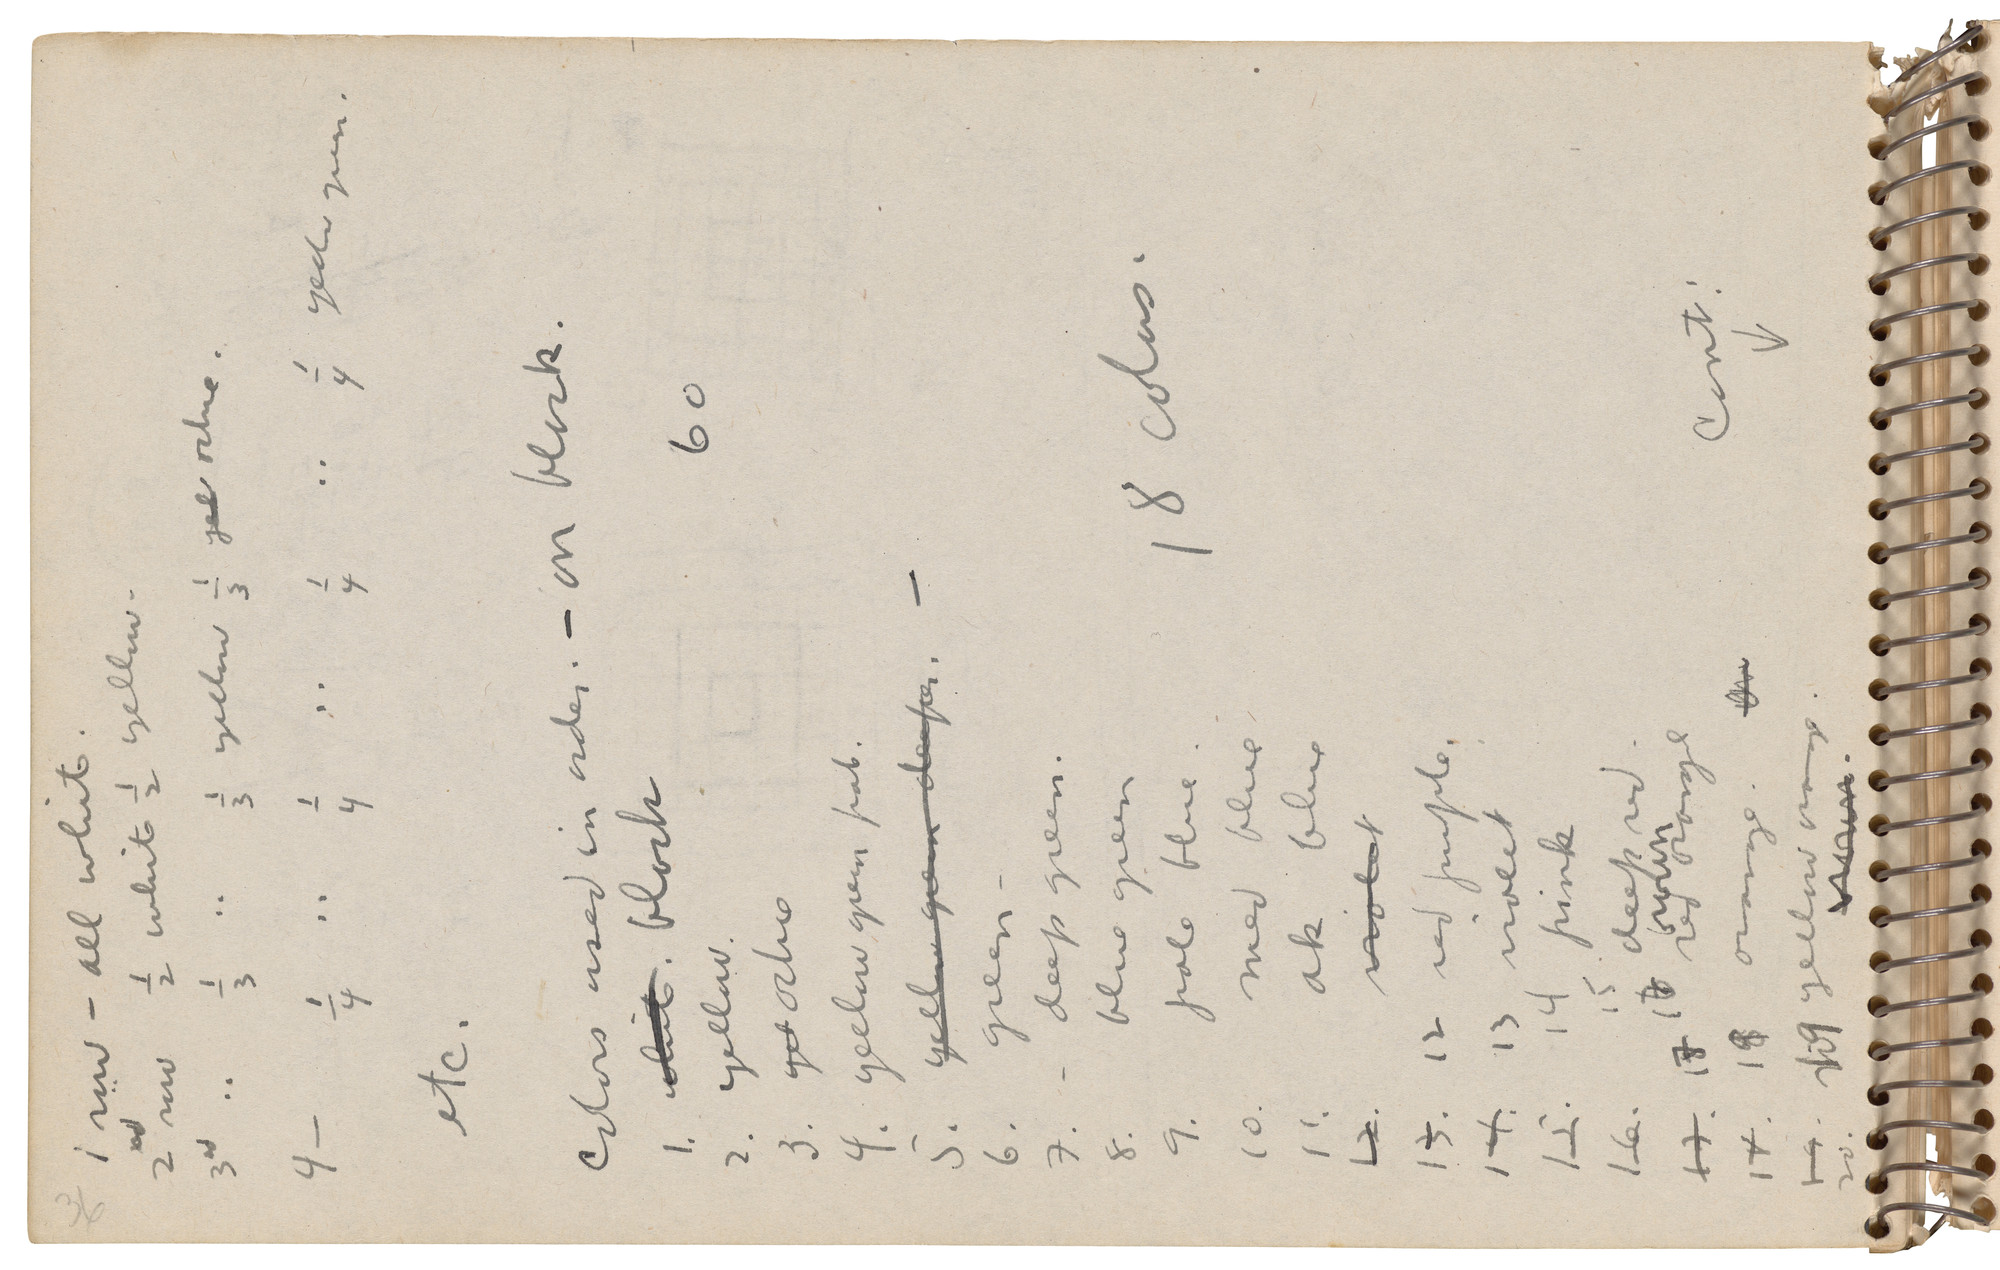 1 row - all white.
2nd row 1/2 white 1/2 yellow -
3rd .. 1/3 .. 1/3 yellow 1/3 yel ochre.
4 - 1/4 .. 1/4 .. 1/4 .. 1/4 yellow green.
etc.
Colors used in order. - on black.
1. white. black 60
2. yellow.
3. yel ochre
4. yellow green pale.
5. yellow green deeper. -
6. green -
7. - deep green.
8. blue green
9. pale blue. 18 colors.
10. med blue.
11. dk blue
12. violet
13. 12 red purple.
14. 13 violet
15. 14 pink
16. 15 deep red.
16 brown
17. 17 red orange
17. 18 orange.
19. 19 yellow orange.
20.
Cont!